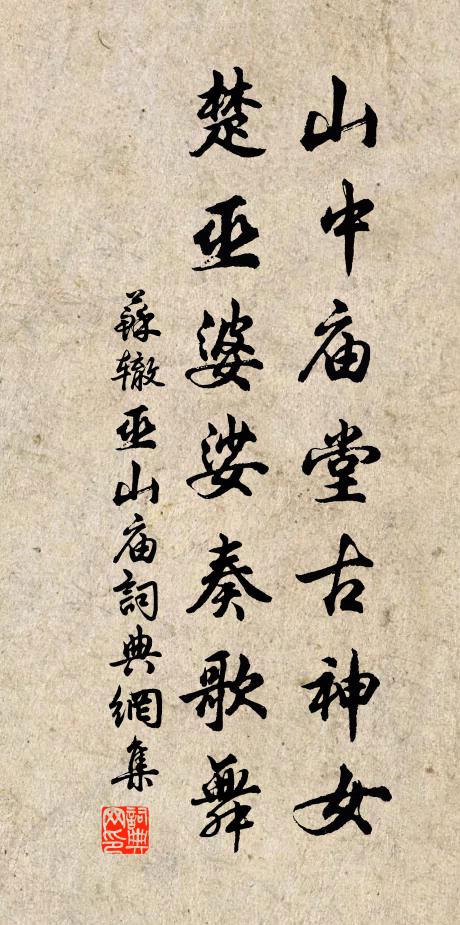 山中庙堂古神女
楚巫婆娑奏歌舞
蘇辙巫山庙詞典網集
詞典网印